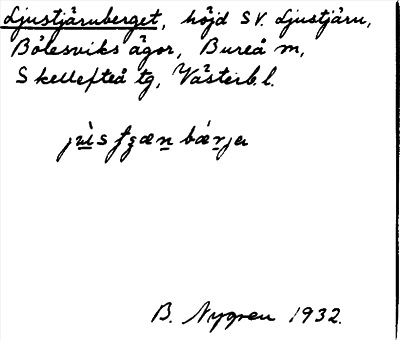 Ljustjärnberget, höjd SV. Ljustjärn,
Bölesviks ägor, Bureå m,
Skellefteå tg, Västerb. l.
B. Nygren 1932.